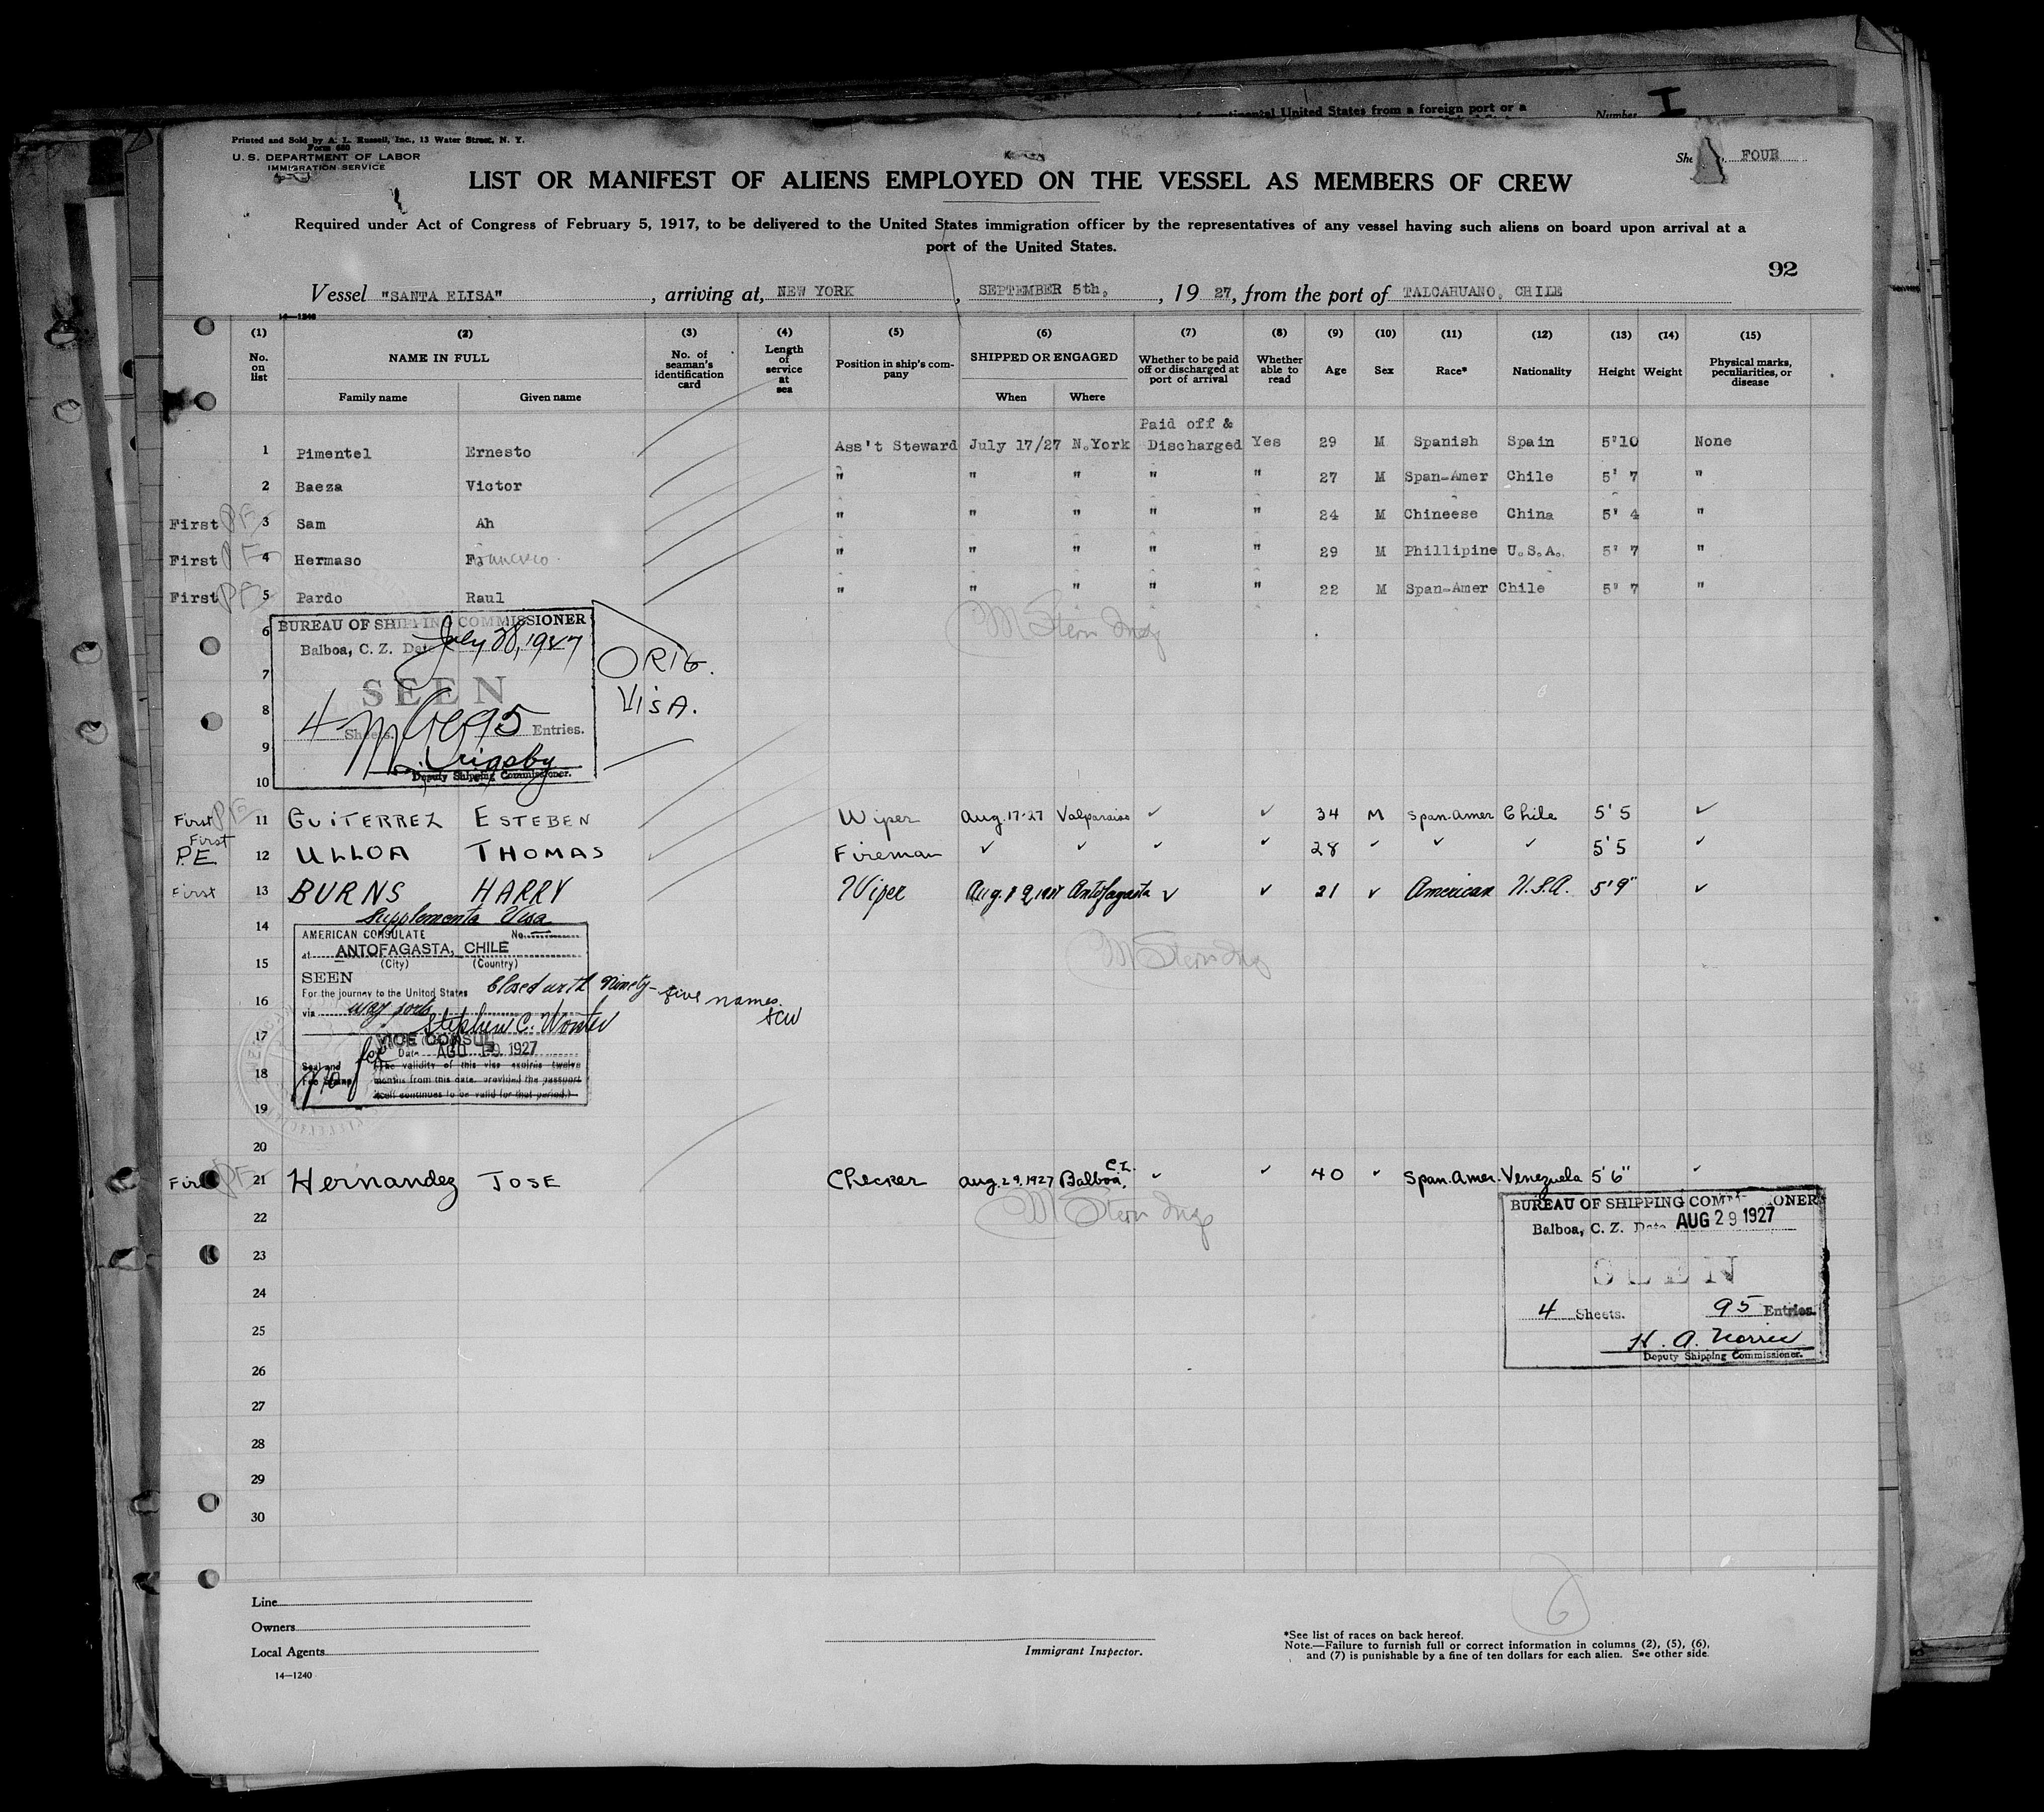 of continental United States from a foreign port or a
Number I
Printed and Sold by A. L. Russell, Inc., 13 Water Street, N. Y.
Form 680
U. S. DEPARTMENT OF LABOR
IMMIGRATION SERVICE
FOUR
LIST OR MANIFEST OF ALIENS EMPLOYED ON THE VESSEL AS MEMBERS OF CREW
Required under Act of Congress of February 5, 1917, to be delivered to the United States immigration officer by the representatives of any vessel having such aliens on board upon arrival at a
port of the United States.
92
Vessel "SANTA ELISA", arriving at, NEW YORK, SEPTEMBER 5th, , 19 27, from the port of TALCAHUANO, CHILE
14—1240
(1) (2) (3) (4) (5) (6) (7) (8) (9) (10) (11) (12) (13) (14) (15)
No. on list NAME IN FULL No. of seaman's identification card Length of service at sea Position in ship's company SHIPPED OR ENGAGED Whether to be paid off or discharged at port of arrival Whether able to read Age Sex Race* Nationality Height Weight Physical marks, peculiarities, or disease
Family name Given name When Where
Paid off &
1 Pimentel Ernesto Ass't Steward July 17/27 N.York Discharged Yes 29 M Spanish Spain 5'10 None
2 Baeza Victor " " " " " 27 M Span-Amer Chile 5' 7 "
First PE 3 Sam Ah " " " " " 24 M Chineese China 5' 4 "
First PE 4 Hermaso Francisco " " " " " 29 M Phillipine U.S.A. 5' 7 "
First PE 5 Pardo Raul " " " " " 22 M Span-Amer Chile 5' 7 "
M Stern Insp
6
7
8
9
10
BUREAU OF SHIPPING COMMISSIONER
Balboa, C. Z. Date July 28, 1927
SEEN
4 Sheets. 95 Entries.
Grigsby
Deputy Shipping Commissioner.
ORIG.
VISA.
First PE 11 GUITERREZ ESTEBEN Wiper Aug. 17-27 Valparaiso ✓ ✓ 34 M Span-Amer Chile 5'5 ✓
First
P.E 12 ULLOA THOMAS Fireman ✓ ✓ ✓ ✓ 28 ✓ ✓ ✓ 5'5 ✓
First 13 BURNS HARRY Wiper Aug. 19, 1927 Antofagasta ✓ ✓ 21 ✓ American U.S.A. 5'9" ✓
M Stern Insp
14
15
16
17
18
19
20
Supplementa Visa
AMERICAN CONSULATE No.
at ANTOFAGASTA, CHILE
(City) (Country)
SEEN
For the journey to the United States Closed with ninety-five names.
SCW
via way ports
Stephen C. Worster
VICE CONSUL
for Date AGO 19 1927
Seal and
Fee Stamp
(The validity of this visa expires twelve
months from this date, provided the passport
itself continues to be valid for that period.)
First PE 21 Hernandez JOSE Checker Aug. 29, 1927 Balboa, C.Z. ✓ ✓ 40 ✓ Span.Amer. Venezuela 5'6" ✓
M Stern Insp
22
23
24
25
26
27
28
29
30
BUREAU OF SHIPPING COMMISSIONER
Balboa, C. Z. Date AUG 29 1927
SEEN
4 Sheets. 95 Entries.
H. A. Norris
Deputy Shipping Commissioner.
6
Line
Owners
Local Agents
14—1240
Immigrant Inspector.
*See list of races on back hereof.
Note.—Failure to furnish full or correct information in columns (2), (5), (6),
and (7) is punishable by a fine of ten dollars for each alien. See other side.